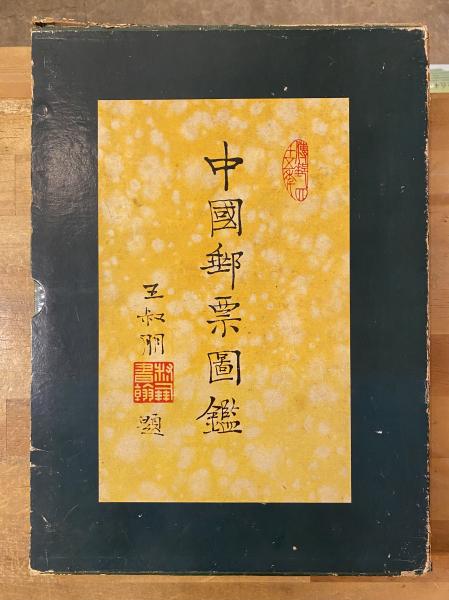 中國郵票圖鑑
王叔朋
題